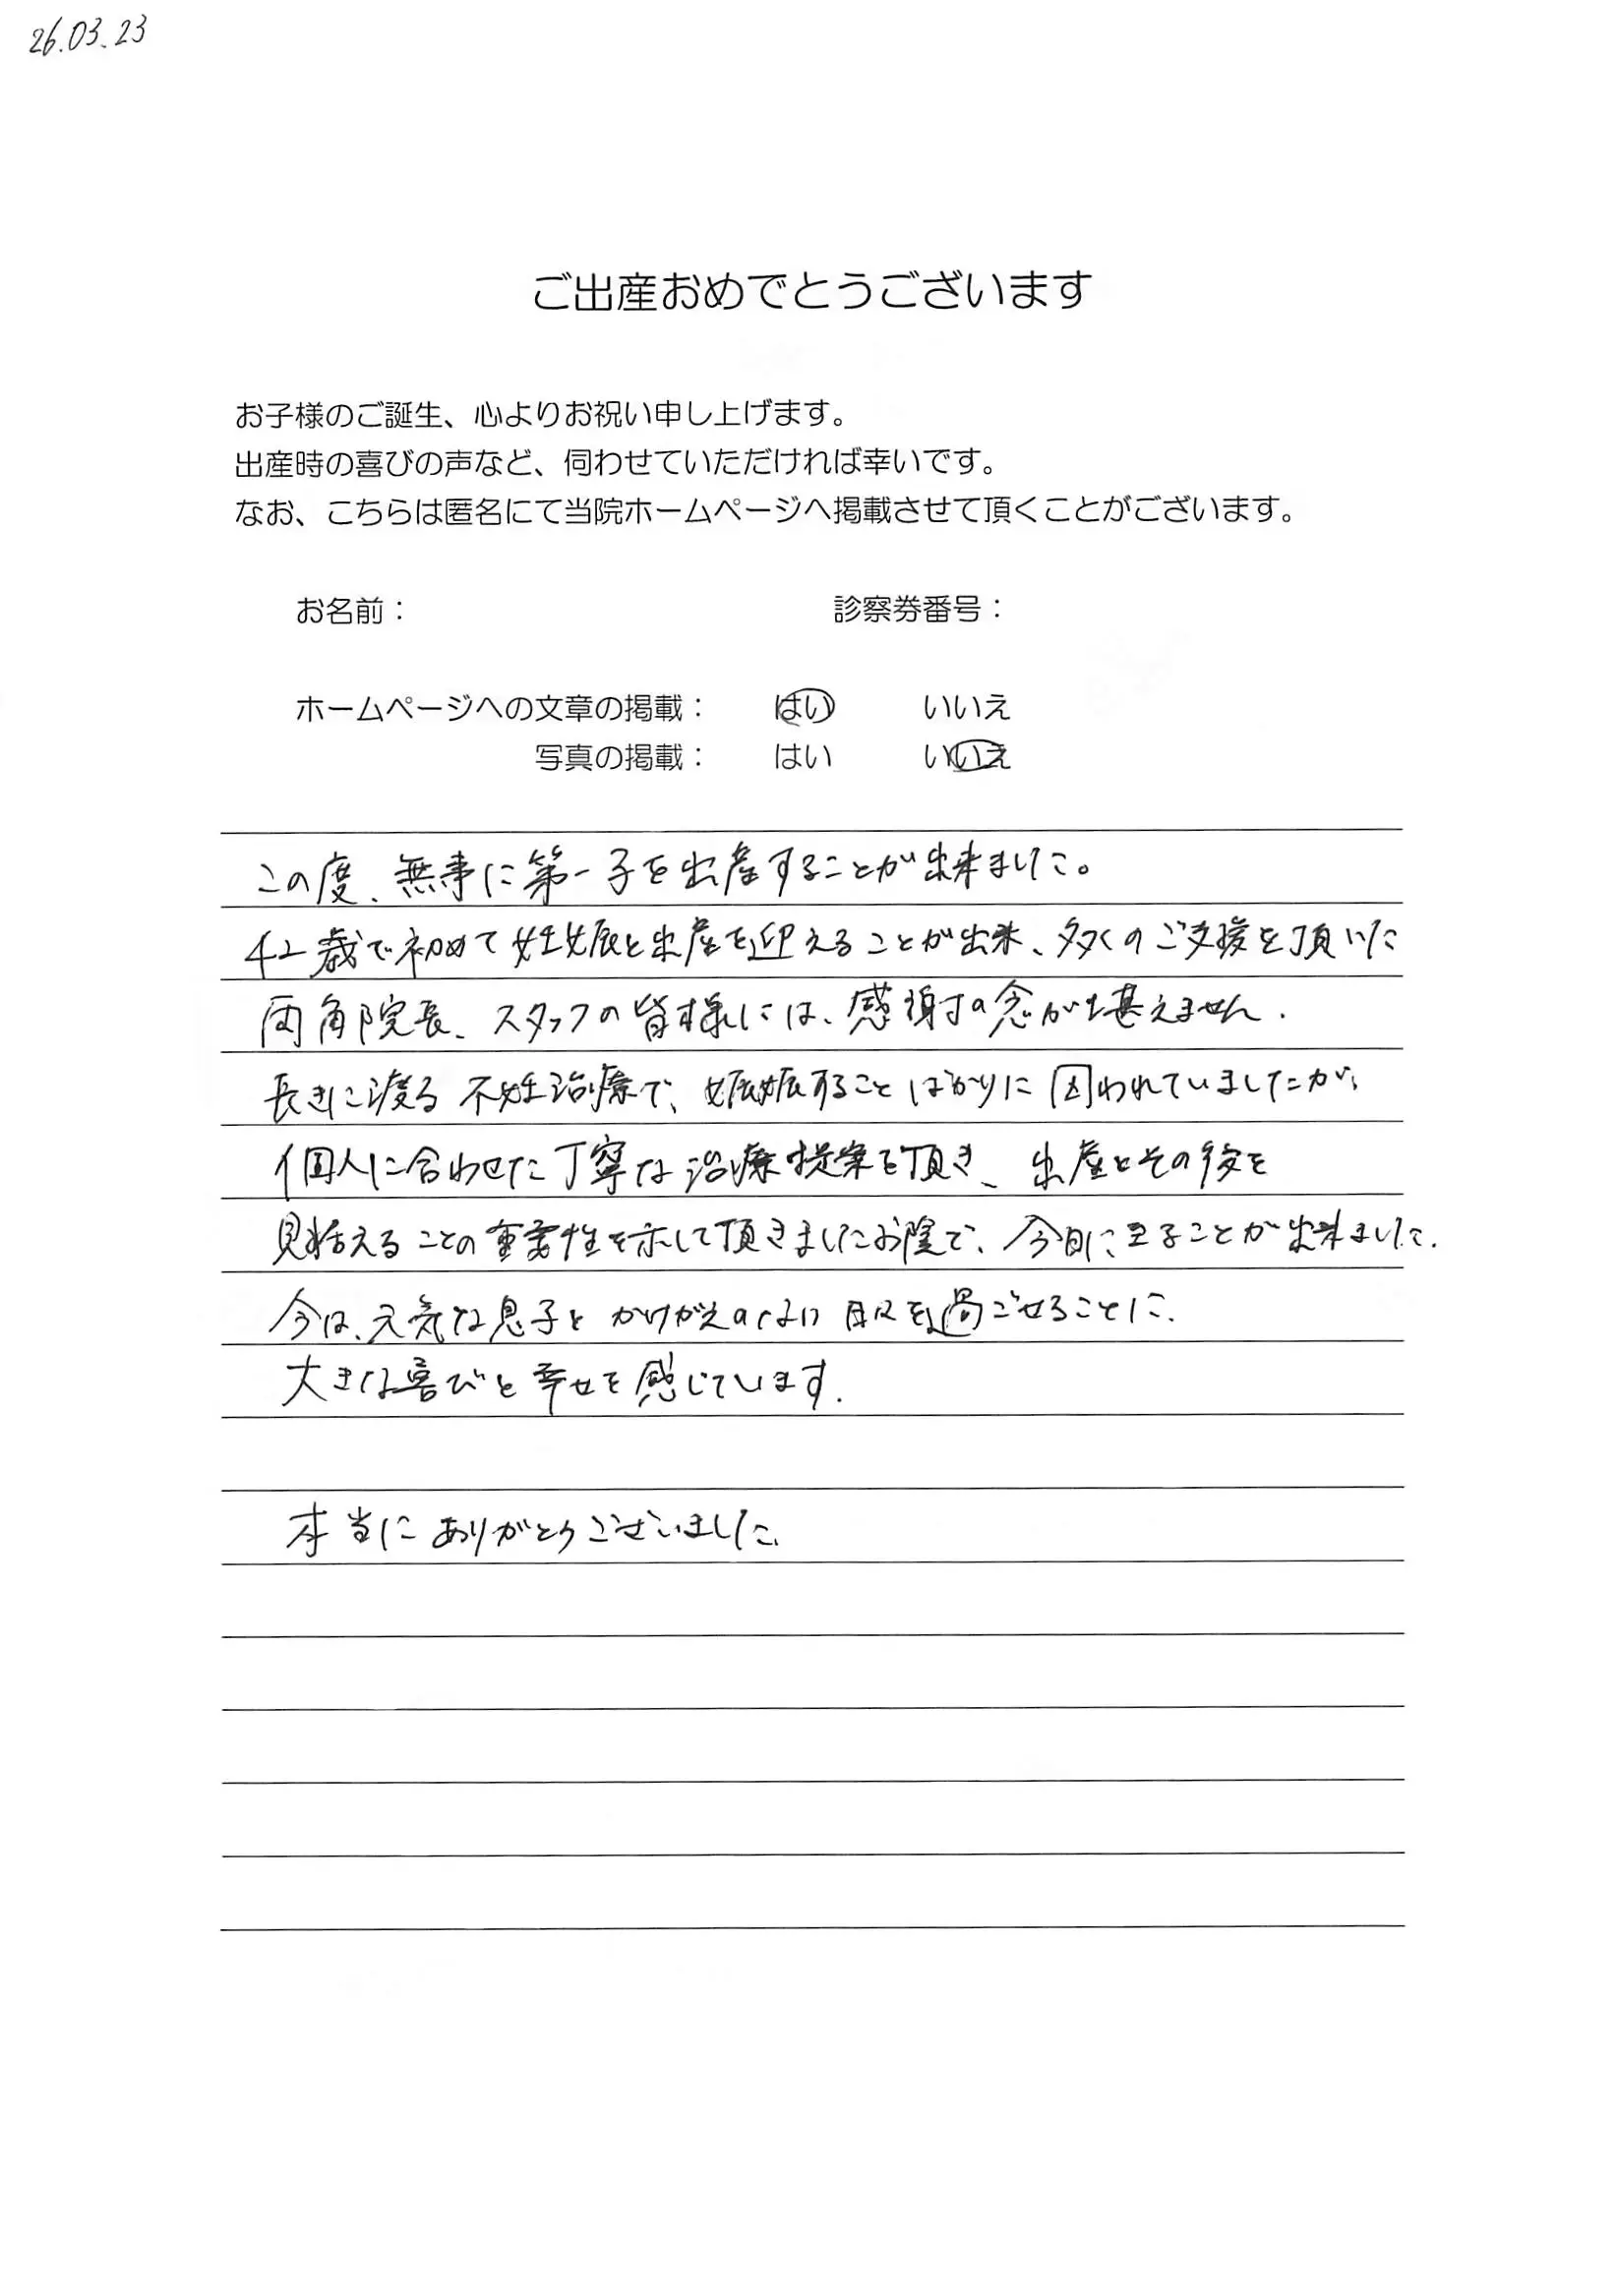 26.03.23
ご出産おめでとうございます
お子様のご誕生、心よりお祝い申し上げます。
出産時の喜びの声など、伺わせていただければ幸いです。
なお、こちらは匿名にて当院ホームページへ掲載させて頂くことがございます。
お名前： 診察券番号：
ホームページへの文章の掲載： はい いいえ
写真の掲載： はい いいえ
この度、無事に第一子を出産することが出来ました。
42歳で初めて妊娠と出産を迎えることが出来、多くのご支援を頂いた
両角院長、スタッフの皆様には、感謝の念が堪えません.
長きに渡る不妊治療で、妊娠することばかりに囚われていましたが、
個人に合わせた丁寧な治療提案を頂き、出産とその後を
見据えることの重要性を示して頂きましたお陰で、今日に至ることが出来ました.
今は、元気な息子とかけがえのない日々を過ごせることに.
大きな喜びと幸せを感じています.
本当にありがとうございました.